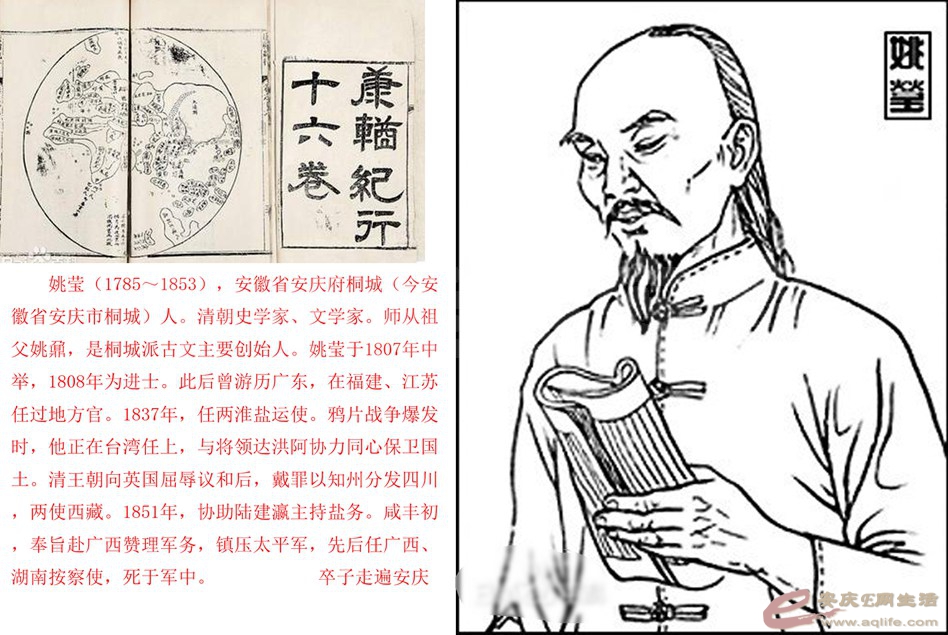 康輶紀行
十六卷
姚莹（1785～1853），安徽省安庆府桐城（今安
徽省安庆市桐城）人。清朝史学家、文学家。师从祖
父姚鼐，是桐城派古文主要创始人。姚莹于1807年中
举，1808年为进士。此后曾游历广东，在福建、江苏
任过地方官。1837年，任两淮盐运使。鸦片战争爆发
时，他正在台湾任上，与将领达洪阿协力同心保卫国
土。清王朝向英国屈辱议和后，戴罪以知州分发四川
，两使西藏。1851年，协助陆建瀛主持盐务。咸丰初
，奉旨赴广西赞理军务，镇压太平军，先后任广西、
湖南按察使，死于军中。 卒子走遍安庆
姚瑩
安庆E周生活
www.aqlife.com